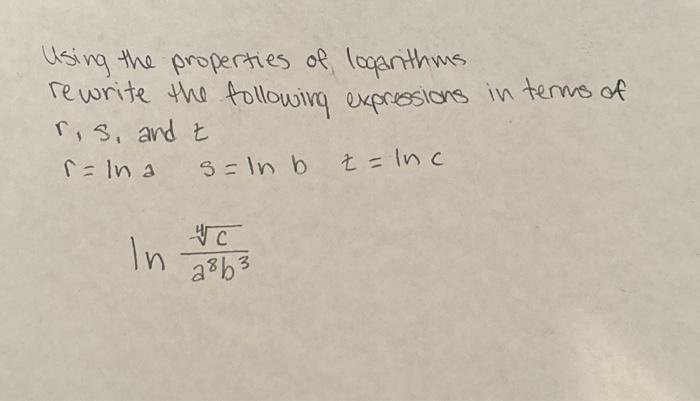 Using the properties of logarithms
rewrite the following expressions in terms of
r, s, and t
r = ln a   s = ln b   t = ln c
ln ∜c / a⁸b³